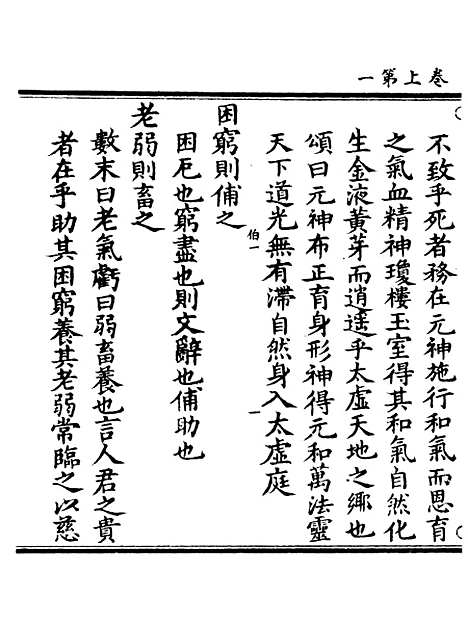 卷上第一
不致乎死者務在元神施行和氣而恩育
之氣血精神瓊樓玉室得其和氣自然化
生金液黃芽而逍遥乎太虛天地之鄉也
頌曰元神布正育身形神得元和萬法靈
天下道光無有滯自然身入太虛庭
伯一
困窮則俌之
困厄也窮盡也則文辭也俌助也
老弱則畜之
數末曰老氣虧曰弱畜養也言人君之貴
者在乎助其困窮養其老弱常臨之以慈